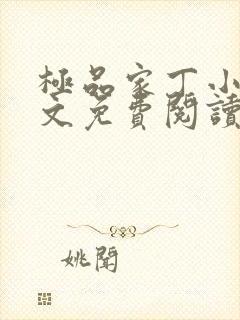 極品家丁小
文免費閱讀
姚聞